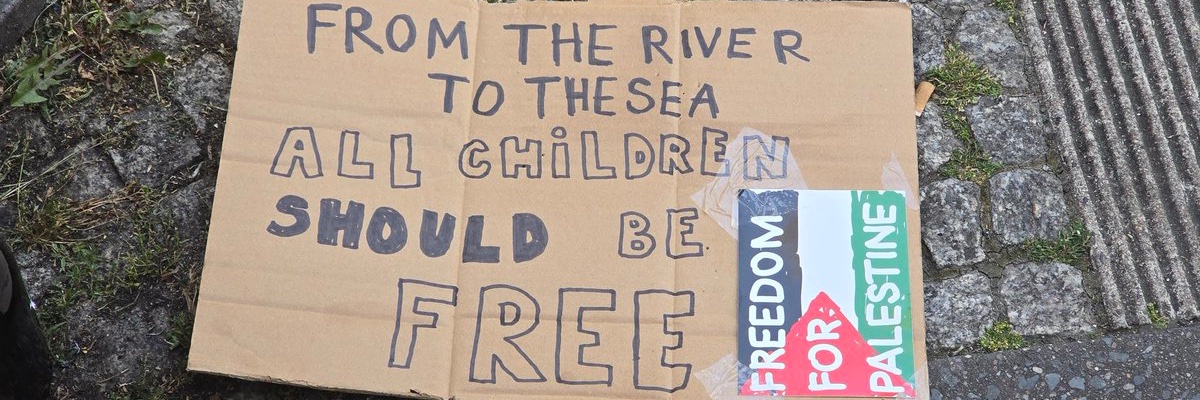 FROM THE RIVER
TO THE SEA
ALL CHiLDREN
SHOULD BE
FREE
FREEDOM
FOR
PALESTINE